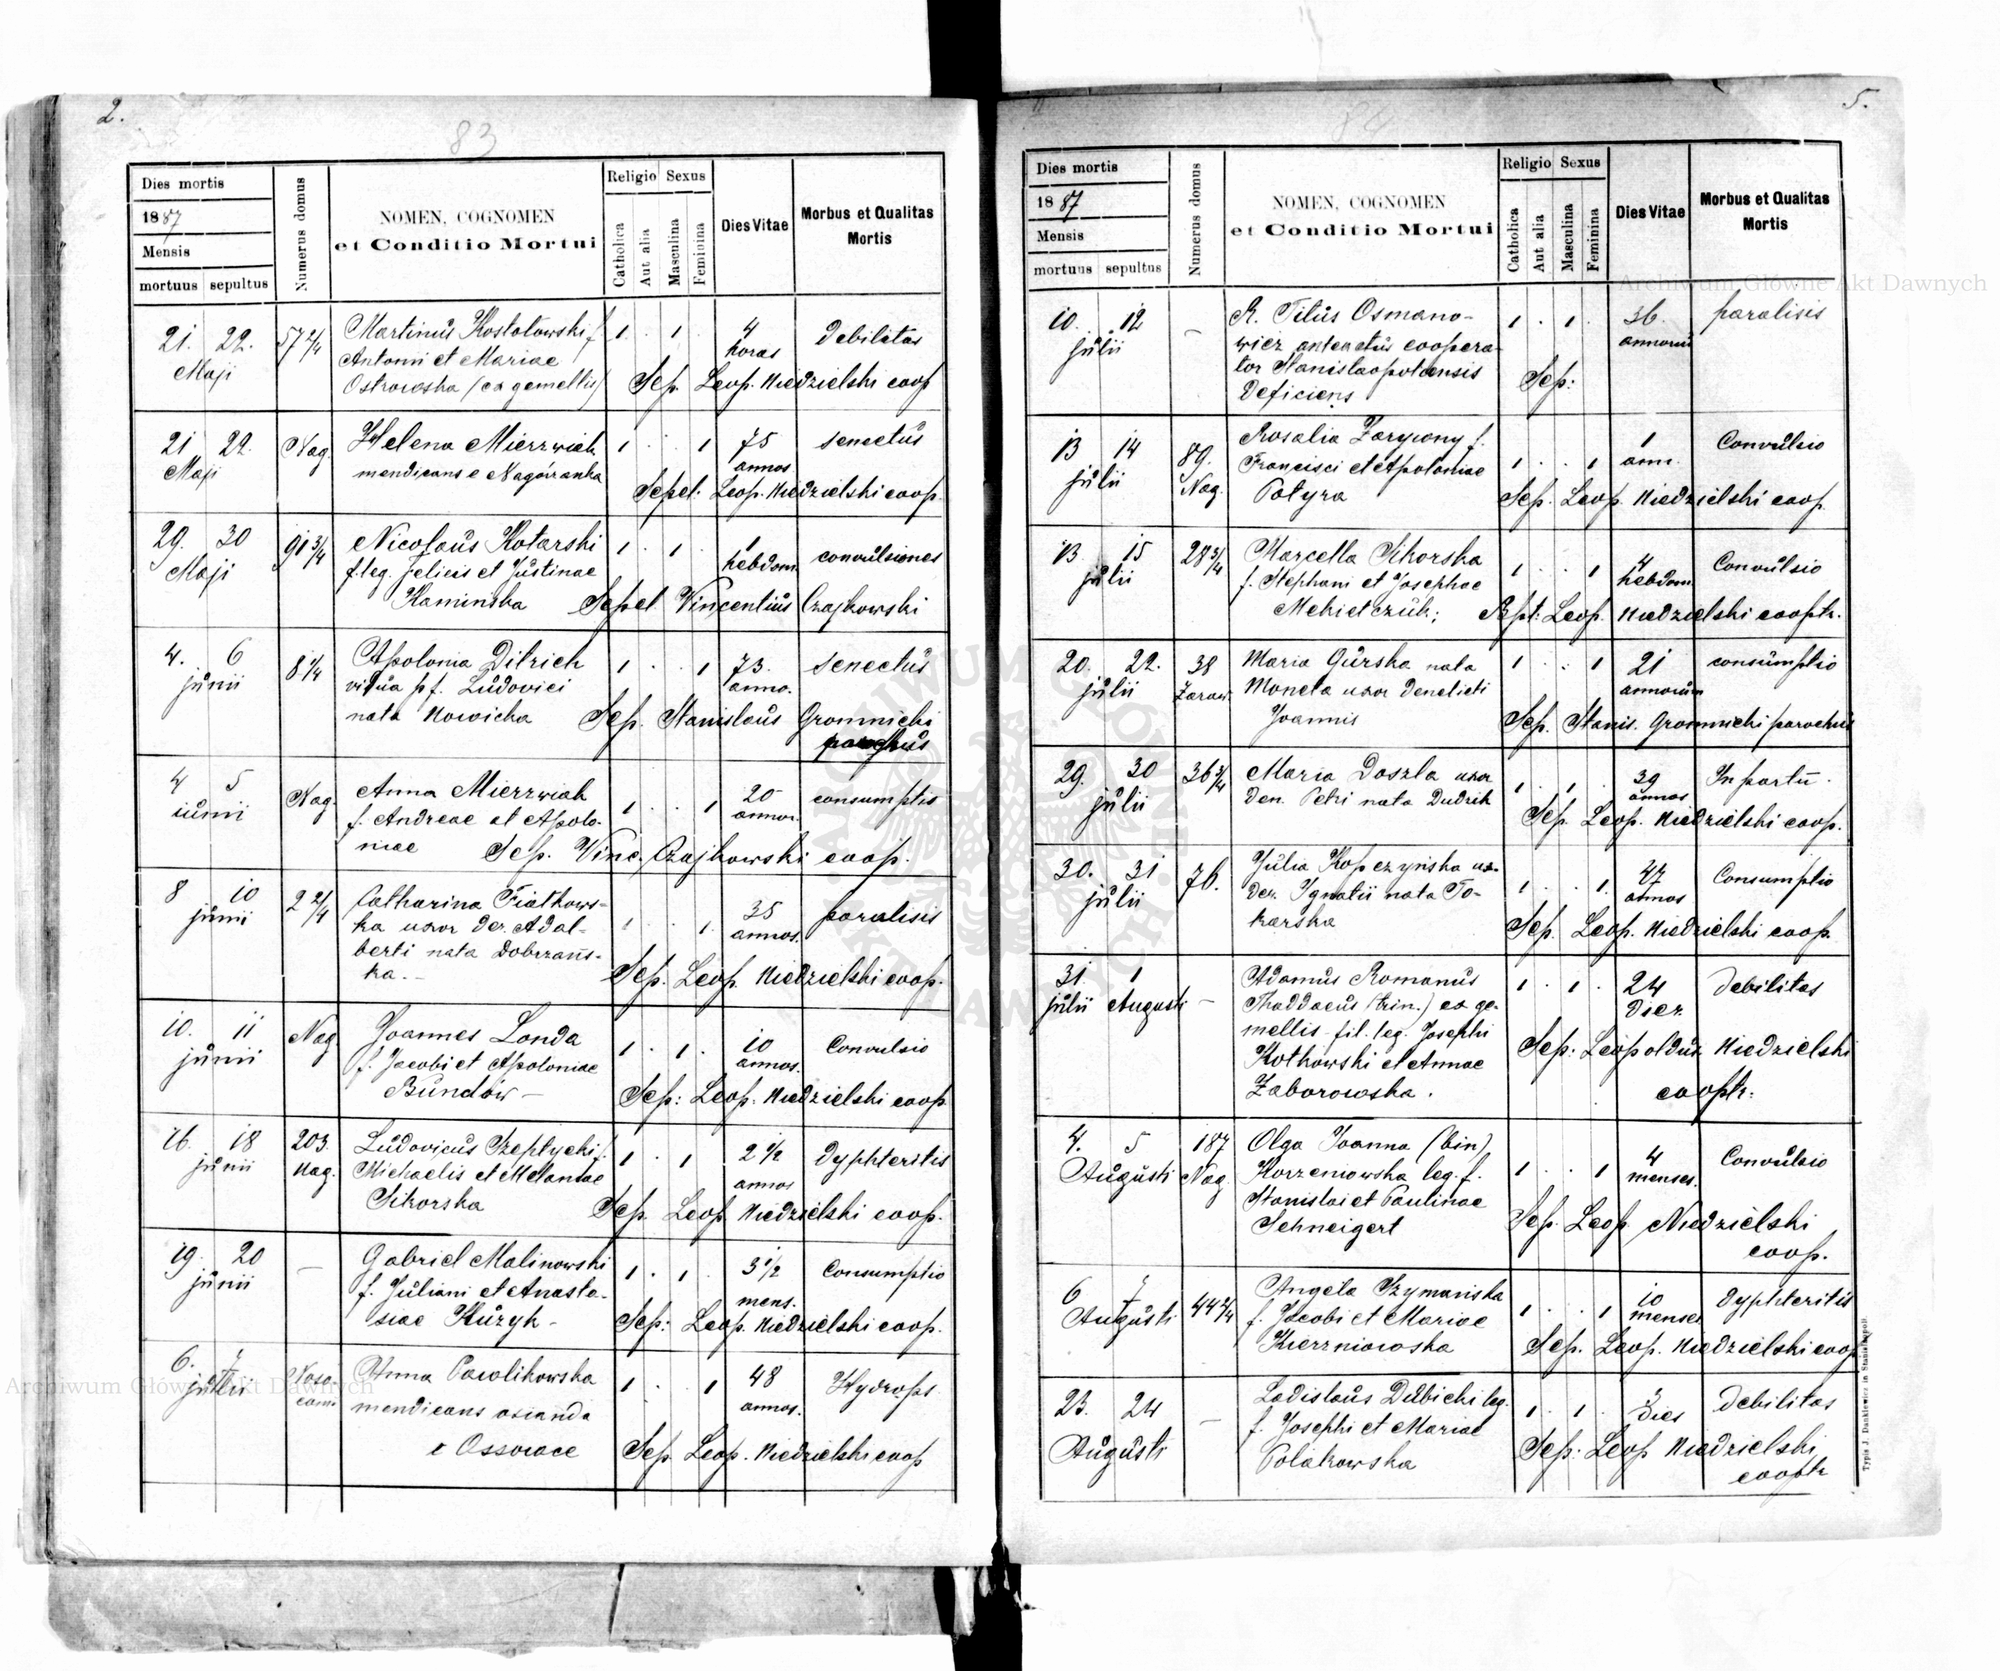 2.
83
Dies mortis
1887
Mensis
mortuus sepultus
Numerus domus
NOMEN, COGNOMEN
et Conditio Mortui
Religio Sexus
Catholica
Aut alia
Masculina
Feminina
Dies Vitae
Morbus et Qualitas
Mortis
21. 22. 57 2/4 Martinus Kostołowski f. 1 . 1 . 4 Debilitas
Maji Antonii et Mariae horas
Ostrowska (ex gemellis) Sep. Leop. Niedzielski coop
21 22. Nag. Helena Mierzwiak 1 . . 1 75 senectus
Maji mendicans e Nagórzanka annos
Sepel. Leop. Niedzielski coop.
29. 30 91 3/4 Nicolaus Kotarski 1 . 1 . 1 convulsiones
Maji f. leg. Felicis et Justinae hebdom.
Kaminska Sepel Vincentius Czajkowski
4. 6 8 1/4 Apolonia Ditrich 1 . . 1 73. senectus
junii vidua p f. Ludovici anno.
nata Nowicka Sep. Stanislaus Gromnicki
parochus
4 5 Nag. Anna Mierzwiak 1 . . 1 20 consumptio
iunii f. Andreae et Apolo- annor.
niae Sep. Vinc. Czajkowski coop.
8 10 2 2/4 Catharina Fiatkows- 1 . . 1. 35 paralisis
junii ka uxor der. Adal- annos.
berti nata Dobrzańs-
ka. - Sep. Leop. Niedzielski coop.
10. 11 Nag. Joannes Londa 1 . 1 . 10 Convulsio
junii f. Jacobi et Apoloniae annos.
Bundów - Sep: Leop. Niedzielski coop
16. 18 203. Ludovicus Szeptycki f. 1 . 1 2 1/2 dyphteritis
junii Nag. Michaelis et Melaniae annos
Sikorska Sep. Leop Niedzielski coop.
19. 20 — Gabriel Malinowski 1 . 1 . 3 1/2 Consumptio
junii f. Juliani et Anasta- mens.
siae Kuzyk - Sep: Leop. Niedzielski coop.
6. 7 Noso- Anna Pawlikowska 1 . . 1 48 Hydrops
comi mendicans annos.
e Ossowce Sep. Leop. Niedzielski coop
5.
84
Dies mortis
1887
Mensis
mortuus sepultus
Numerus domus
NOMEN, COGNOMEN
et Conditio Mortui
Religio Sexus
Catholica
Aut alia
Masculina
Feminina
Dies Vitae
Morbus et Qualitas
Mortis
10. 12 — R. Titus Osmano- 1 . 1 . 36. paralisis
julii wicz coopera- annorum
tor Stanislaopoliensis Sep:
Deficiens
13 14 89. Rosalia Zarycony f. 1 . . 1 1 Convulsio
julii Nag. Francisci et Apoloniae ann.
Potyra Sep. Leop. Niedzielski coop.
13 15 28 3/4 Marcella Sikorska 1 . . 1 4 Convulsio
julii f. Stephani et Josephae hebdom.
Sept: Leop. Niedzielski cooptr.
20. 22. 38 Maria Gurska nata 1 . . 1 21 consumptio
julii Moneta uxor Benedicti annorum
Joannis Sep. Stanis. Gromnicki parochus
29. 30 36 3/4 Maria Doszla uxor 1 . 1 . 39 In partu.
julii Den. Petri nata Dudzik annos
Sep. Leop. Niedzielski coop.
30. 31 76. Julia Kopczyńska ux- 1 . . 1. 47 Consumptio
julii Der. Ignatii nata To- annos
karska Sep. Leop. Niedzielski coop.
31. 1 — Adamus Romanus 1 . 1 . 24 Debilitas
julii Augusti Thaddaeus (trin.) ex ge- Dier.
mellis fil. leg. Josephi Sep: Leopoldus Niedzielski
Kotkowski et Annae
Zaborowska. cooptr:
4. 5 187 Olga Joanna (bin) 1 . . 1 4 Convulsio
Augusti Nag. Korzeniowska leg. f. menses.
Stanislai et Paulinae Sep. Leop Niedzielski
Schneigert coop.
6 7 44 2/4 Angela Szymańska 1 . . 1 10 dyphteritis
Augusti f. Jacobi et Mariae menses
Kierzniowska Sep. Leop. Niedzielski coop
23. 24 — Ladislaus Dubicki leg. 1 . 1 . 3 Debilitas
Augusti f. Josephi et Mariae dies
Polakowska Sep: Leop Niedzielski
cooptr
Typis J. Dankiewicz in Stanislaopoli.
Archiwum Główne Akt Dawnych
Archiwum Główne Akt Dawnych
ARCHIWUM GŁÓWNE AKT DAWNYCH